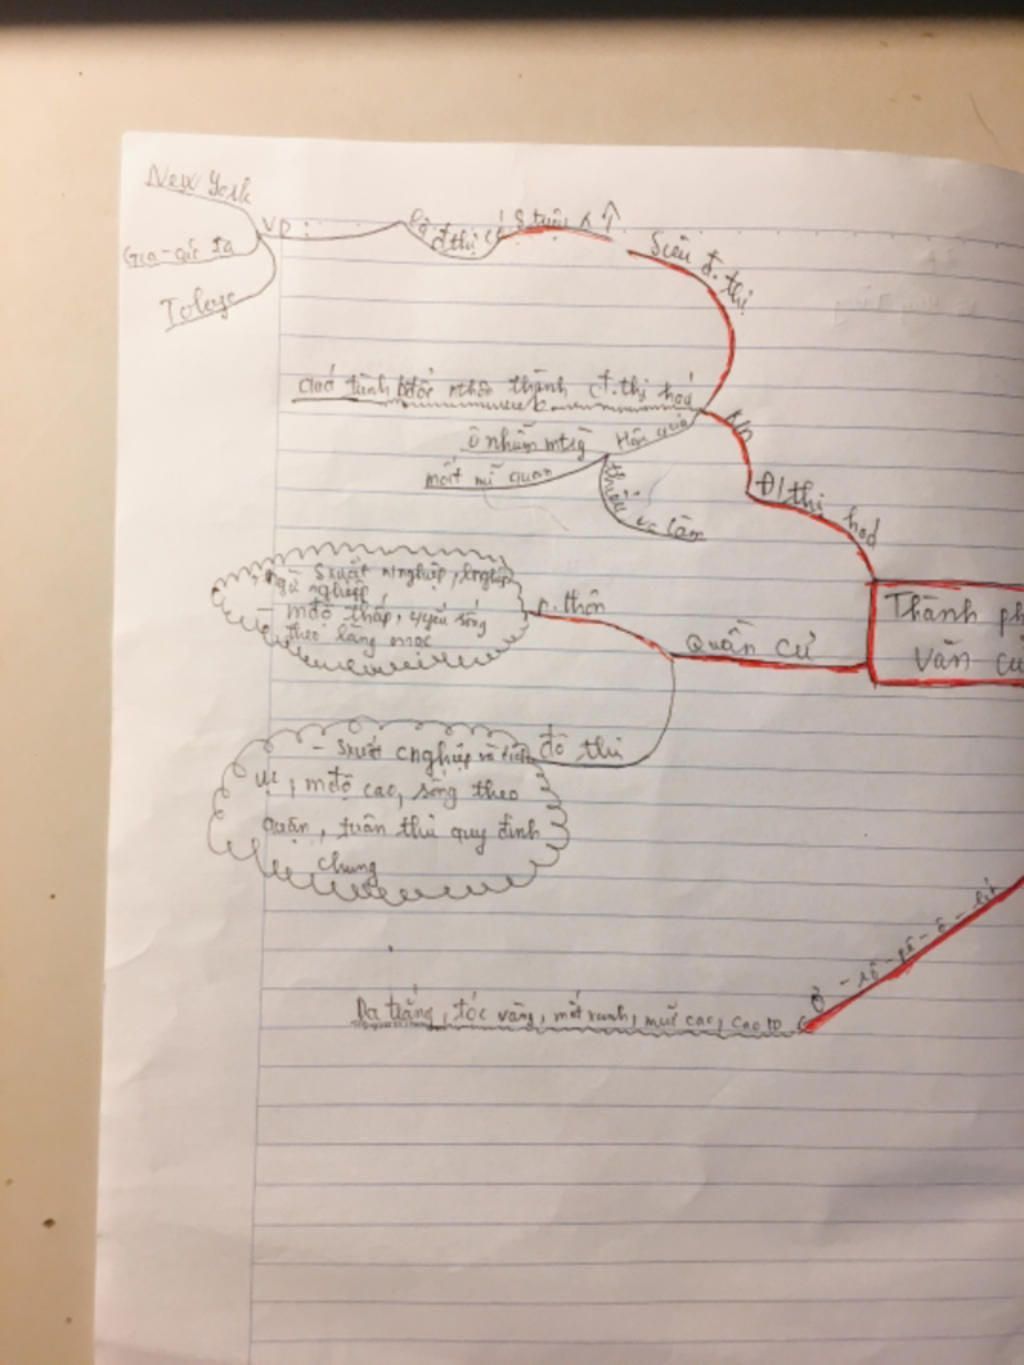 New York
VD:
Gia-các ta
Tokyo
là đ thị có S triệu ↑
Siêu đ.thị
Quá trình bđổi nthôn thành đ.thị hoá
K/n
Hậu quả
ô nhiễm mtrg
mất mĩ quan
thiếu vc làm
Đ/thị hoá
- Sxuất nnghiệp, lnghiệp,
ngư nghiệp
- mđộ thấp, cyếu sống
theo làng mạc
n.thôn
Quần cư
Thành ph
Văn cư
- Sxuất cnghiệp và dịch
vụ, mđộ cao, sống theo
quận, tuân thủ quy định
chung
đô thị
Ơ-rô-pê-ô-lít
Da trắng, tóc vàng, mắt xanh, mũi cao, cao to